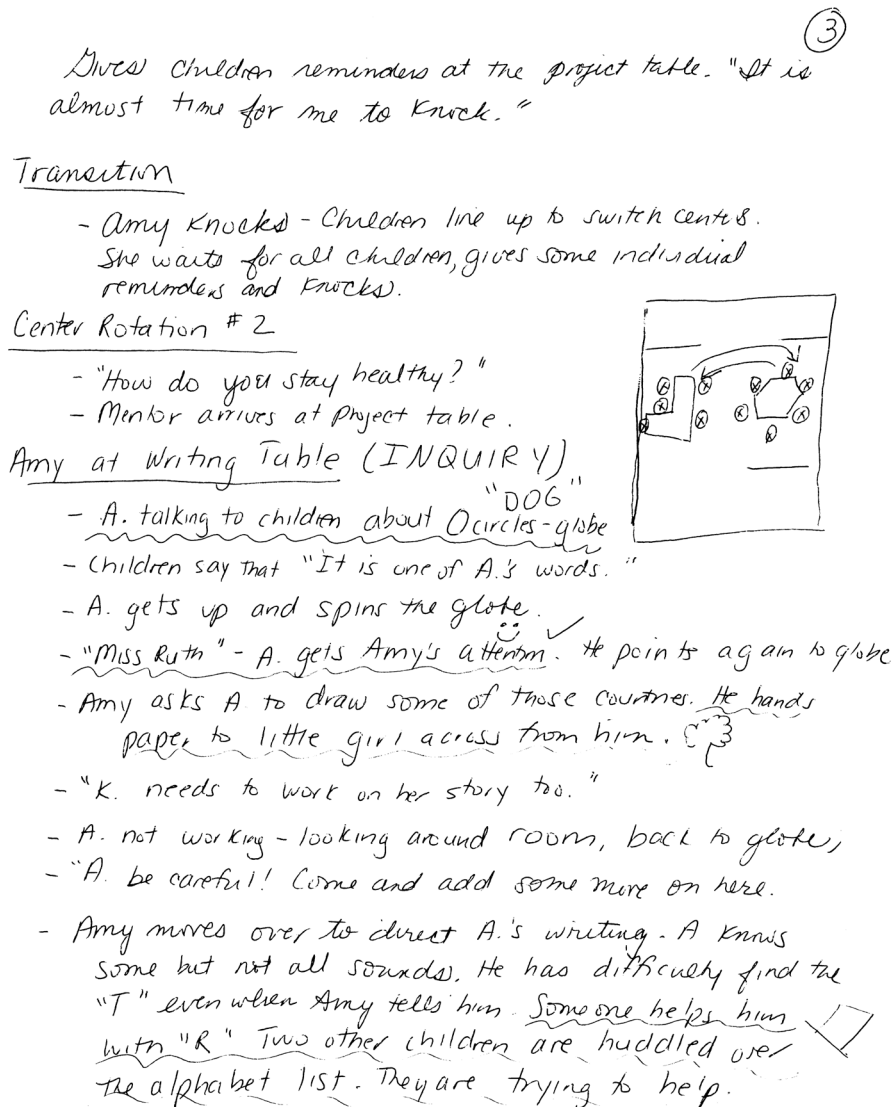 3
Gives children reminders at the project table. "It is
almost time for me to knock."
Transition
- Amy knocks - Children line up to switch centers.
She waits for all children, gives some individual
reminders and knocks.
Center Rotation # 2
- "How do you stay healthy?"
- Mentor arrives at project table.
Amy at Writing Table (INQUIRY)
"DOG"
- A. talking to children about O circles - globe
- Children say that "It is one of A.'s words."
- A. gets up and spins the globe.
- "Miss Ruth" - A. gets Amy's attention. He points again to globe
- Amy asks A. to draw some of those countries. He hands
paper to little girl across from him.
- "K. needs to work on her story too."
- A. not working - looking around room, back to globe,
- "A. be careful! Come and add some more on here.
- Amy moves over to direct A.'s writing. A knows
some but not all sounds. He has difficulty find the
"T" even when Amy tells him. Someone helps him
with "R" Two other children are huddled over
the alphabet list. They are trying to help.